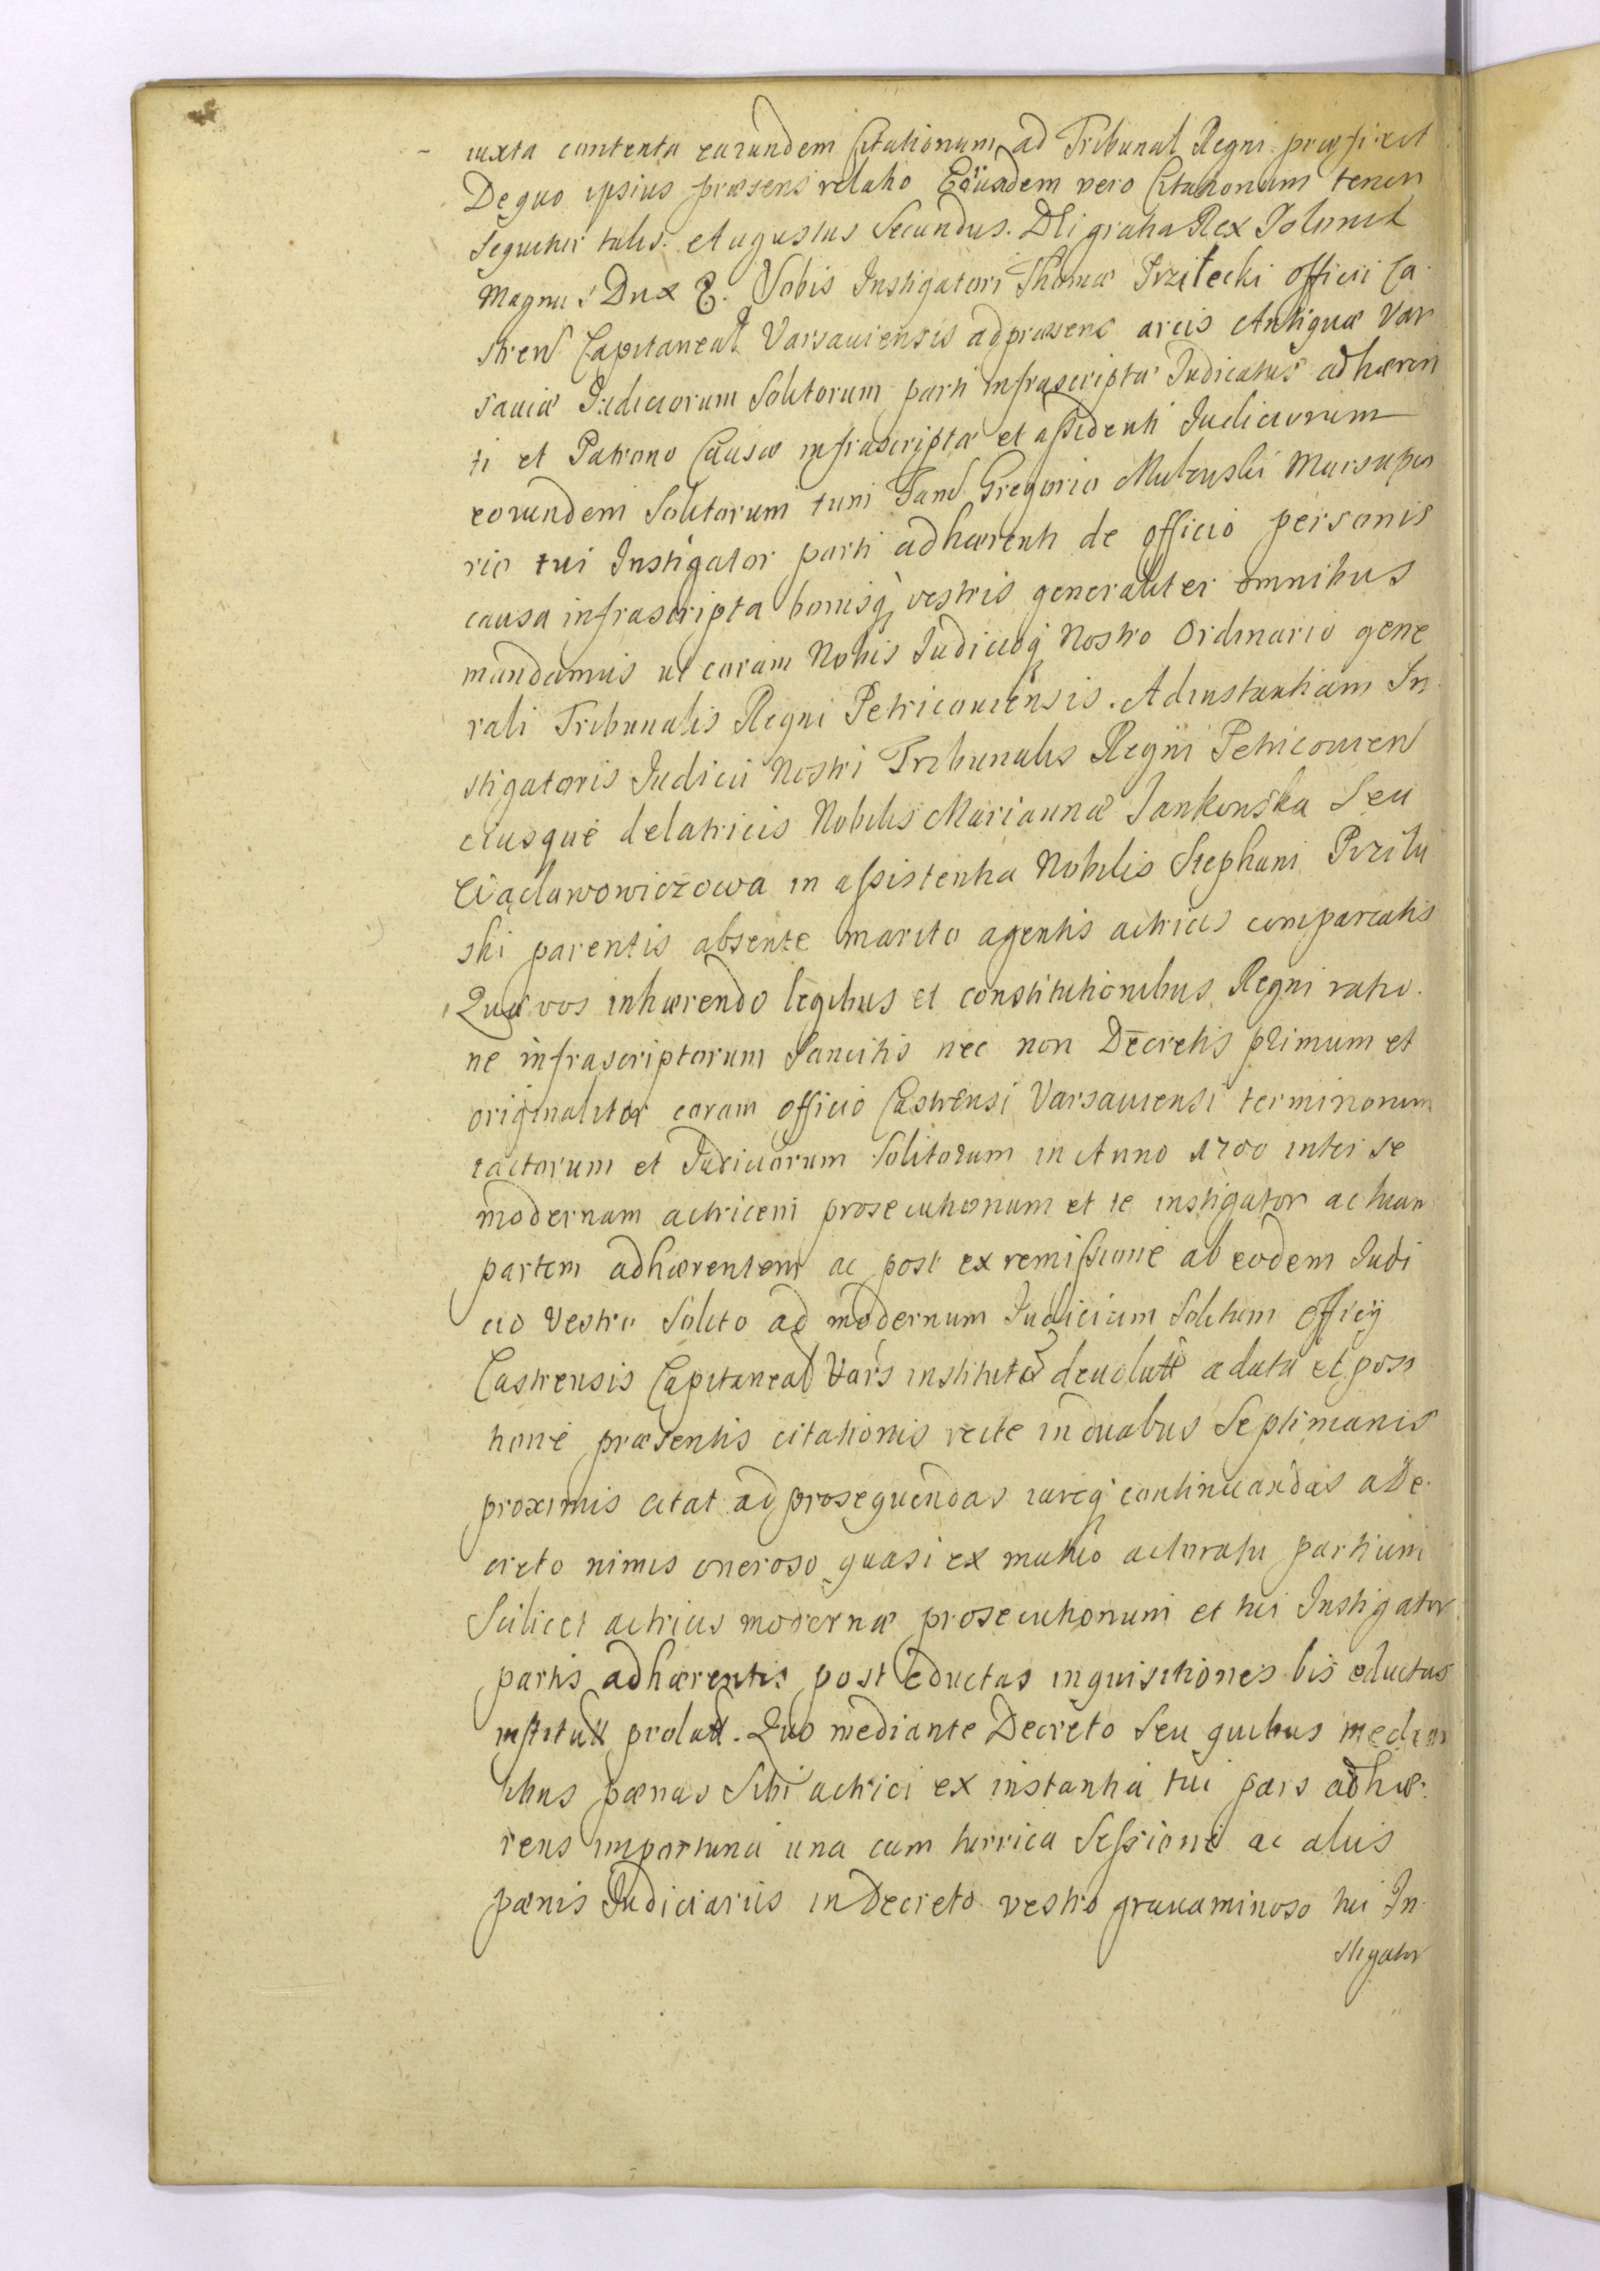 iuxta contenta earundem Citationum ad Tribunal Regni præfixit
De quo ipsius præsens relatio Eorundem vero Citationum tenor
sequitur talis. Augustus Secundus. Dei gratia Rex Poloniæ
Magnus Dux &. Vobis Instigatori Thomæ Przilecki officii Ca
stren Capitaneal Varsauiensis ad præsens arcis Antiquæ Var
sauiæ Iudiciorum Solitorum parti infrascriptæ Iudicatus adhæren
ti et Patrono Causæ infrascriptæ et assidenti Iudiciorum
eorundem Solitorum tum Fam Gregorio Marsupia
rio tui Instigator parti adhærenti de officio personis
causa infrascripta bonisq vestris generaliter omnibus
mandamus ut coram Nobis Iudicioq Nostro Ordinario gene
rali Tribunalis Regni Petricouiensis. Ad instantiam In
stigatoris Iudicii Nostri Tribunalis Regni Petricouien
eiusque delatricis Nobilis Mariannæ Jankowska Seu
Wacławowiczowa in assistentia Nobilis Stephani Przilu
ski parentis absente marito agentis actricis compareatis
Quæ vos inhærendo legibus et constitutionibus Regni ratio
ne infrascriptorum Sancitis nec non Decretis primum et
originaliter coram officio Castrensi Varsauiensi terminorum
tactorum et Iudiciorum Solitorum in Anno 1700 inter se
modernam actricem prosecutionum et te instigator ac tuam
partem adhærentem ac post ex remissione ab eodem Iudi
cio Vestro Solito ad modernum Iudicium Solitum Officij
Castrensis Capitaneal Vars instituto deuolutæ a data et posi
tione præsentis citationis recte in duabus Septimanis
proximis citat ad prosequendas iureq continuandas a De
creto nimis oneroso quasi ex mutuo actoratu partium
Scilicet actricis modernæ prosecutionum et tui Instigator
partis adhærentis post eductas inquisitiones bis eductas
institutt prolatt. Quo mediante Decreto Seu quibus median
tibus pænas Sibi actrici ex instantia tui pars adhæ
rens importuna una cum turrica Sessione ac aliis
pænis Iudiciariis in Decreto vestro grauaminoso tui In
stigator